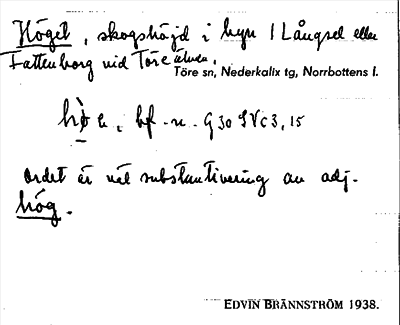 Höget, skogshöjd i byn / Långsel eller
Fattenborg vid Töre älven.
Töre sn, Nederkalix tg, Norrbottens l.
bf. n. G 30 IV c 3, 15
Ordet är väl substantivering av adj.
hög.
EDVIN BRÄNNSTRÖM 1938.